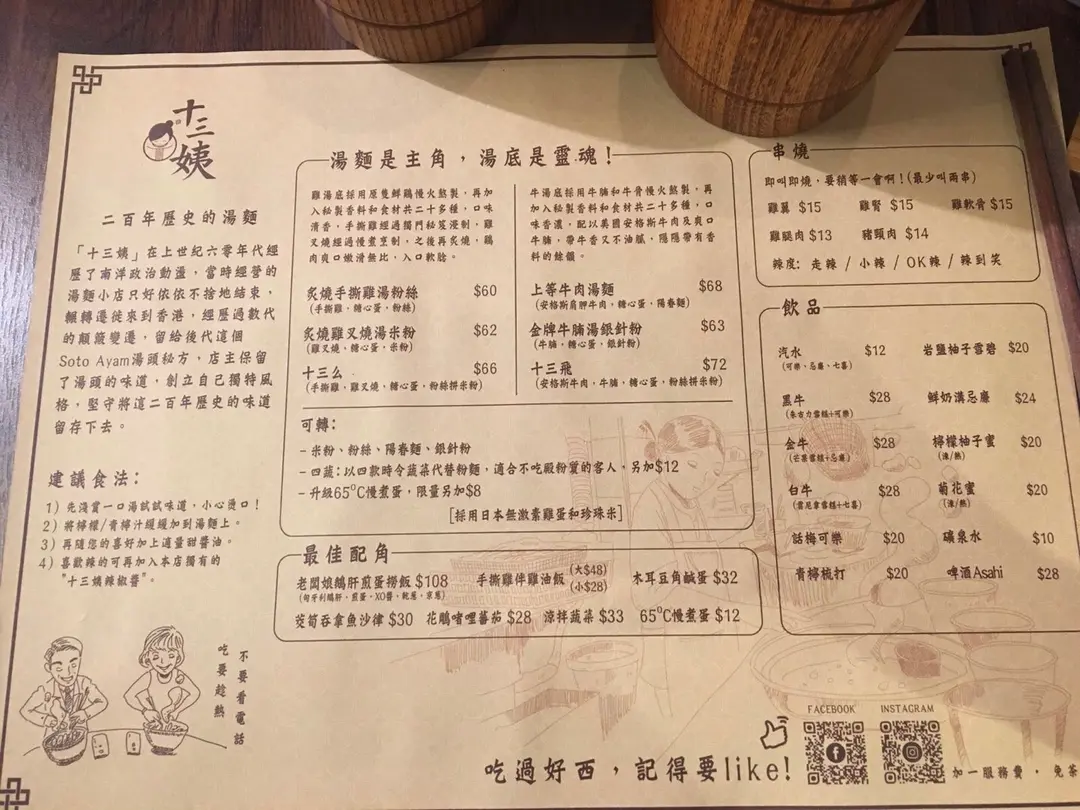 十三姨
二百年歷史的湯麵
「十三姨」在上世紀六零年代經
歷了南洋政治動盪，當時經營的
湯麵小店只好依依不捨地結束，
輾轉遷徙來到香港，經歷過數代
的顛簸變遷，留給後代這個
Soto Ayam湯頭秘方，店主保留
了湯頭的味道，創立自己獨特風
格，堅守將這二百年歷史的味道
留存下去。
建議食法：
1）先淺嘗一口湯試試味道，小心燙口！
2）將檸檬/青檸汁緩緩加到湯麵上。
3）再隨您的喜好加上適量甜醬油。
4）喜歡辣的可再加入本店獨有的
"十三姨辣椒醬"。
不要看電話
吃要趁熱
湯麵是主角，湯底是靈魂！
雞湯底採用原隻鮮鷄慢火熬製，再加
入秘製香料和食材共二十多種，口味
清香，手撕雞經過獨門秘笈浸制，雞
叉燒經過慢煮烹制，之後再炙燒，鷄
肉爽口嫩滑無比，入口軟腍。
炙燒手撕雞湯粉絲 $60
(手撕雞，糖心蛋，粉絲)
炙燒雞叉燒湯米粉 $62
(雞叉燒，糖心蛋，米粉)
十三么 $66
(手撕雞，雞叉燒，糖心蛋，粉絲拼米粉)
牛湯底採用牛腩和牛骨慢火熬製，再
加入秘製香料和食材共二十多種，口
味香濃，配以美國安格斯牛肉及爽口
牛腩，帶牛香又不油膩，隱隱帶有香
料的餘韻。
上等牛肉湯麵 $68
(安格斯肩胛牛肉，糖心蛋，陽春麵)
金牌牛腩湯銀針粉 $63
(牛腩，糖心蛋，銀針粉)
十三飛 $72
(安格斯牛肉，牛腩，糖心蛋，粉絲拼米粉)
可轉：
- 米粉、粉絲、陽春麵、銀針粉
- 四蔬：以四款時令蔬菜代替粉麵，適合不吃澱粉質的客人，另加$12
- 升級65°C慢煮蛋，限量另加$8
[採用日本無激素雞蛋和珍珠米]
最佳配角
老闆娘鵝肝煎蛋撈飯 $108 手撕雞伴雞油飯 (大$48) (小$28) 木耳豆角鹹蛋 $32
(匈牙利鵝肝，煎蛋，XO醬，乾葱，京葱)
茭筍吞拿魚沙律 $30 花鵰啫喱蕃茄 $28 涼拌蔬菜 $33 65°C慢煮蛋 $12
串燒
即叫即燒，要稍等一會啊！(最少叫兩串)
雞翼 $15 雞腎 $15 雞軟骨 $15
雞腿肉 $13 豬頸肉 $14
辣度：走辣 / 小辣 / OK辣 / 辣到笑
飲品
汽水 $12 岩鹽柚子雪碧 $20
(可樂、忌廉、七喜)
黑牛 $28 鮮奶溝忌廉 $24
(朱古力雪糕+可樂)
金牛 $28 檸檬柚子蜜 $20
(芒果雪糕+忌廉) (凍/熱)
白牛 $28 菊花蜜 $20
(雲尼拿雪糕+七喜) (凍/熱)
話梅可樂 $20 礦泉水 $10
青檸梳打 $20 啤酒Asahi $28
FACEBOOK INSTAGRAM
吃過好西，記得要like!
加一服務費，免茶